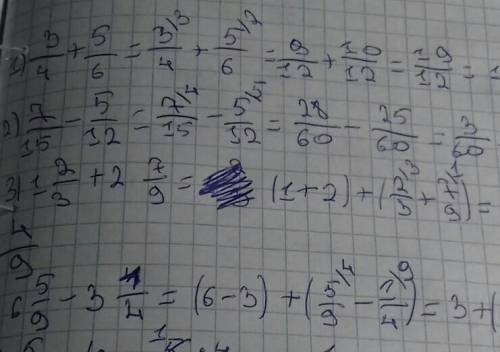 1) 3/4 + 5/6 = 3/4 /3 + 5/6 /2 = 9/12 + 10/12 = 19/12 = 1
2) 7/15 - 5/12 = 7/15 /4 - 5/12 /5 = 28/60 - 25/60 = 3/60
3) 1 2/3 + 2 7/9 = (1+2) + (2/3 /3 + 7/9 /1) =
6 5/9 - 3 /4 = (6-3) + (5/9 /4 - /4 /9) = 3 + (